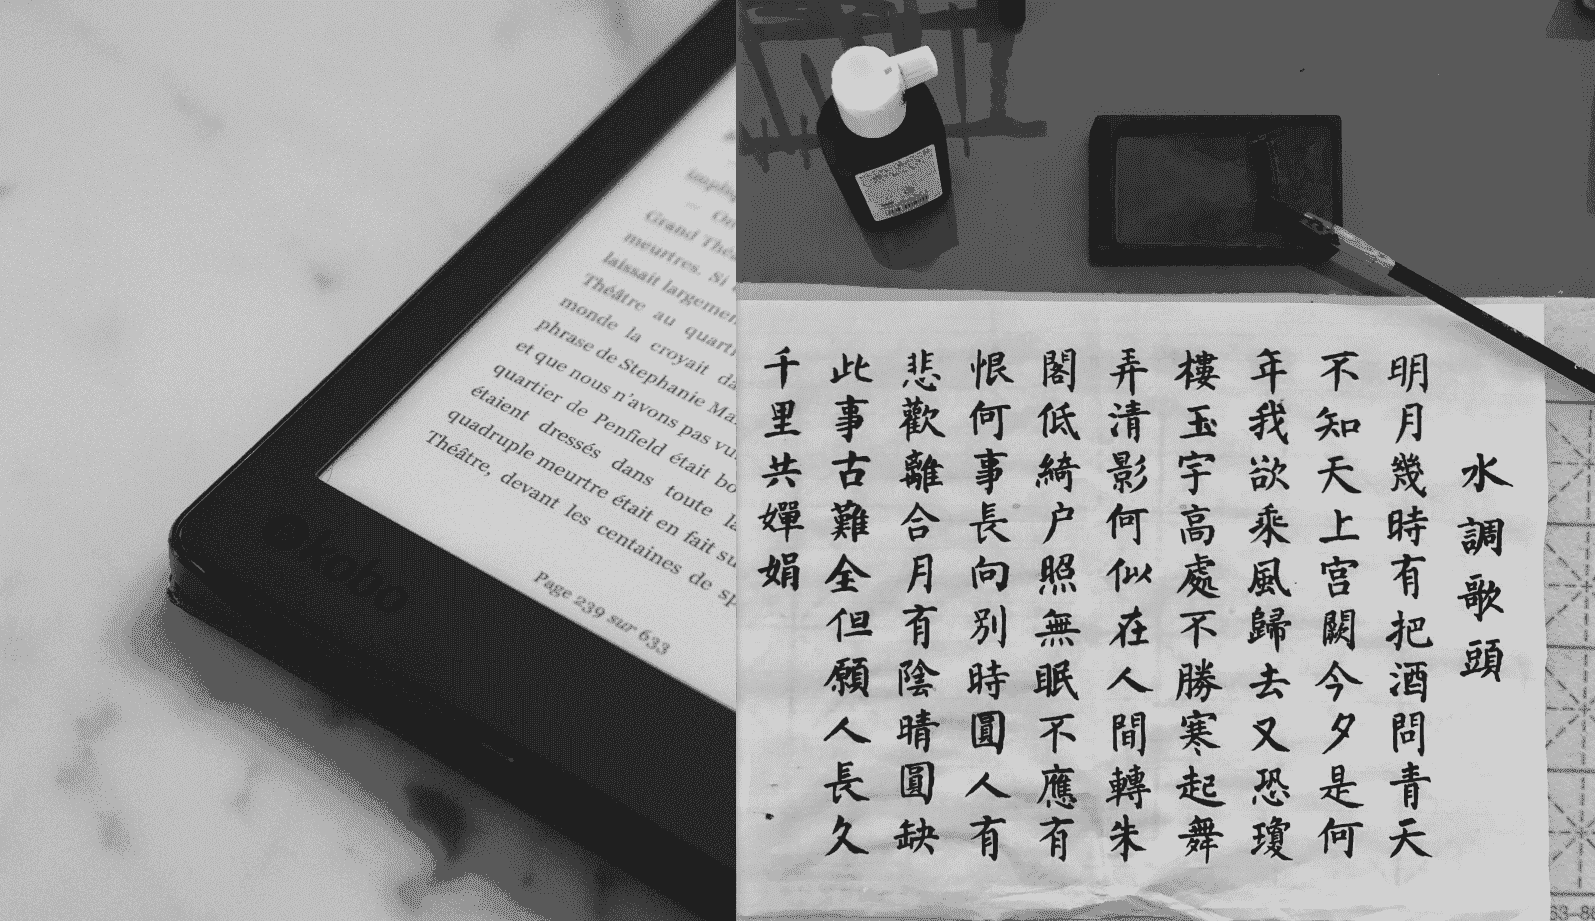 — On
Grand Théâ
meurtres. Si
laissait largemen
Théâtre au quarti
monde la croyait da
phrase de Stephanie Ma
et que nous n'avons pas vu
quartier de Penfield était bo
étaient dressés dans toute la
quadruple meurtre était en fait su
Théâtre, devant les centaines de sp
Page 239 sur 633
kobo
水調歌頭
明月幾時有把酒問青天
不知天上宮闕今夕是何
年我欲乘風歸去又恐瓊
樓玉宇高處不勝寒起舞
弄清影何似在人間轉朱
閣低綺户照無眠不應有
恨何事長向别時圓人有
悲歡離合月有陰晴圓缺
此事古難全但願人長久
千里共嬋娟